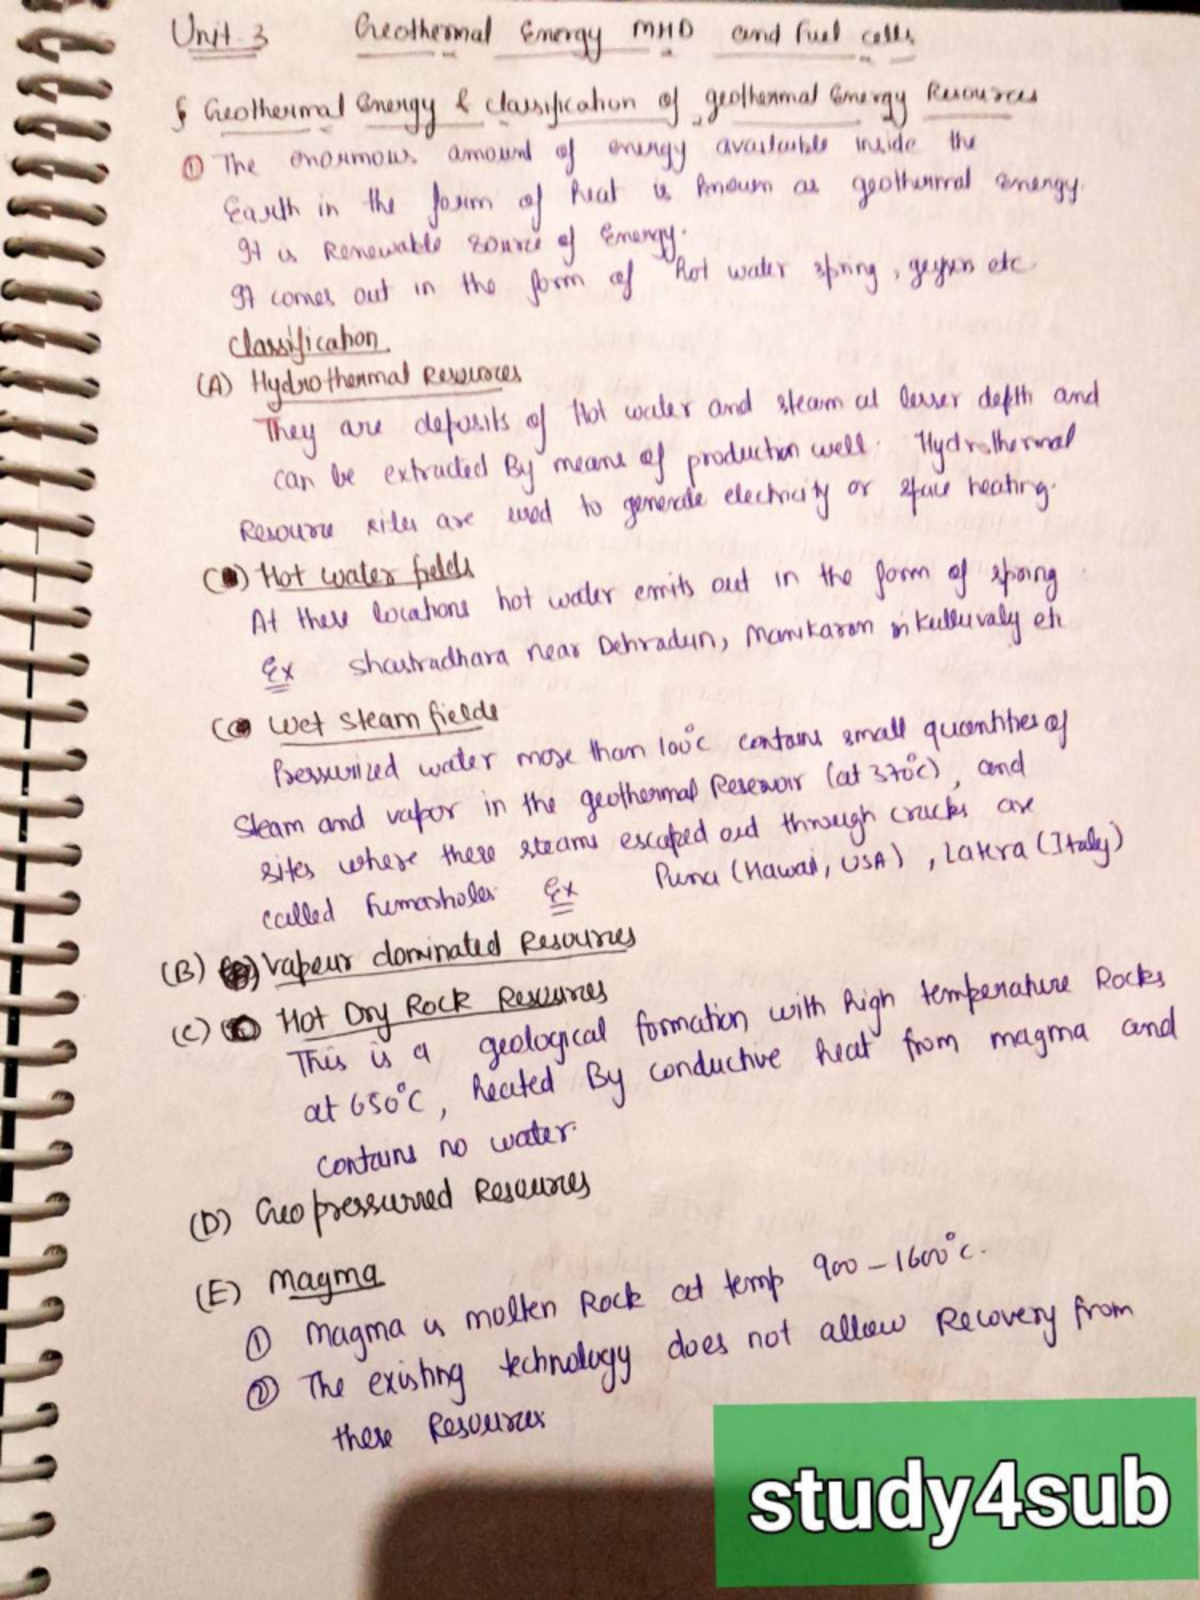 Unit-3 Geothermal Energy MHD and Fuel cells
§ Geothermal Energy & Classification of geothermal Energy Resources
① The enormous amound of energy available inside the
Earth in the form of heat is known as geothermal energy.
It is Renewable source of Energy.
It comes out in the form of hot water spring, geysers etc.
Classification
(A) Hydrothermal Resources
They are deposits of Hot water and steam at lesser depth and
can be extracted By means of production well. Hydrothermal
Resource sites are used to generate electricity or space heating.
Hot water fields
At these locations hot water emits out in the form of spring
Ex Shastradhara near Dehradun, Manikaran in Kulluvaly etc
Wet steam fields
Pressurized water more than 100°C contains small quantities of
Steam and vapor in the geothermal Reservoir (at 370°C), and
sites where these steams escaped out through cracks are
called fumasholes Ex Puna (Hawaii, USA), Latera (Italy)
(B) Vapour dominated Resources
(C) Hot Dry Rock Resources
This is a geological formation with high temperature Rocks
at 650°C, heated By conductive heat from magma and
contains no water.
(D) Geopressurred Resources
(E) Magma
① Magma is molten Rock at temp 900-1600°C.
② The existing technology does not allow Recovery from
these Resources
study4sub